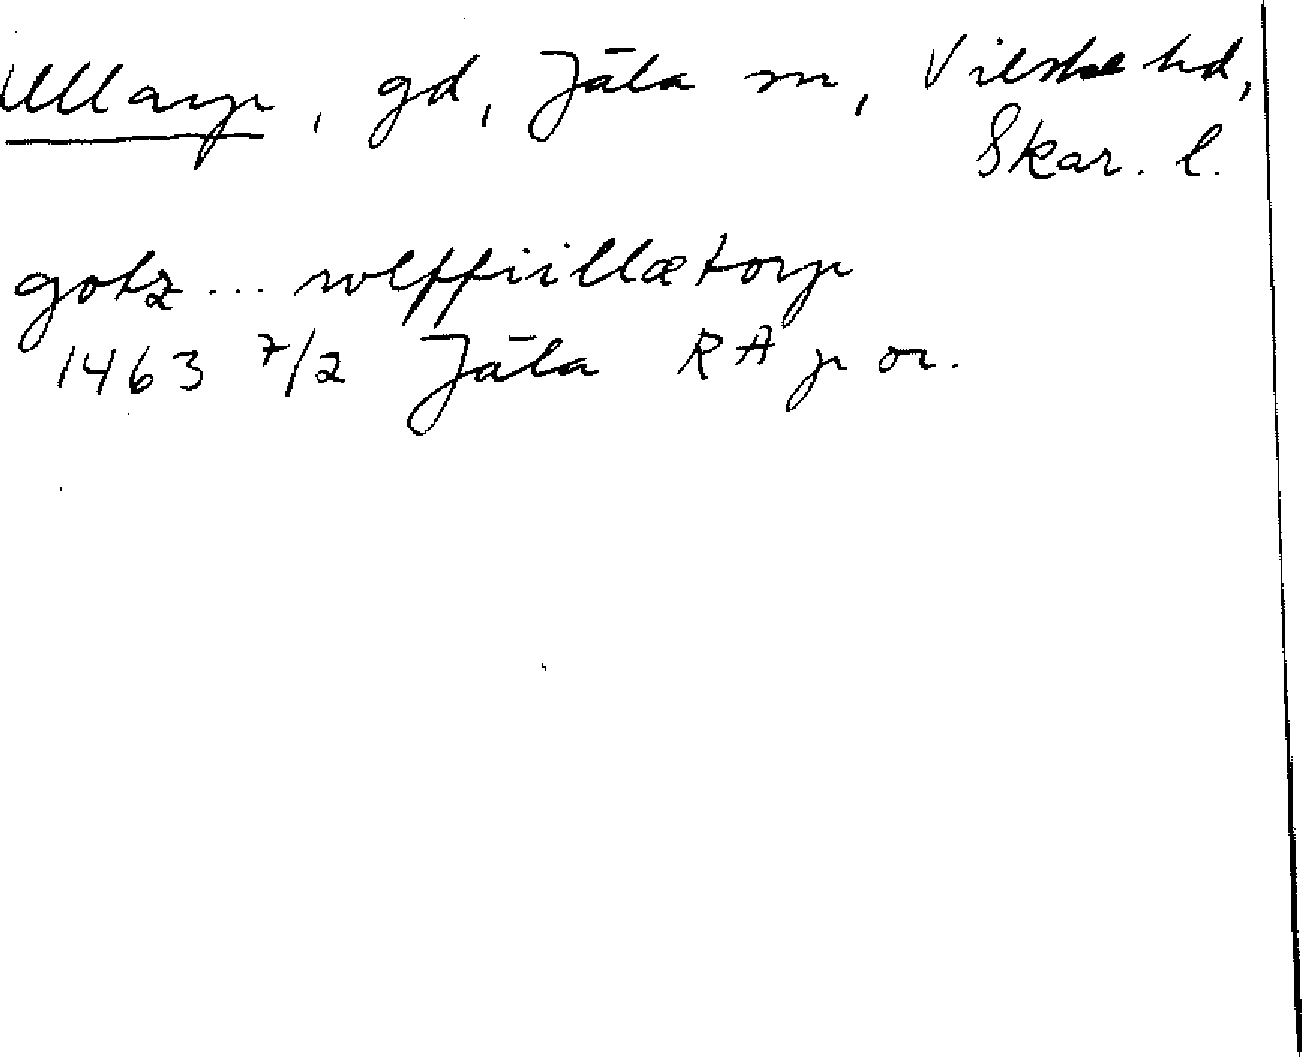 Ullarp, gd, Jäla sn, Vilske hd,
Skar. l.
gotz ... wlffiillætorp
1463 7/2 Jäla RA p or.